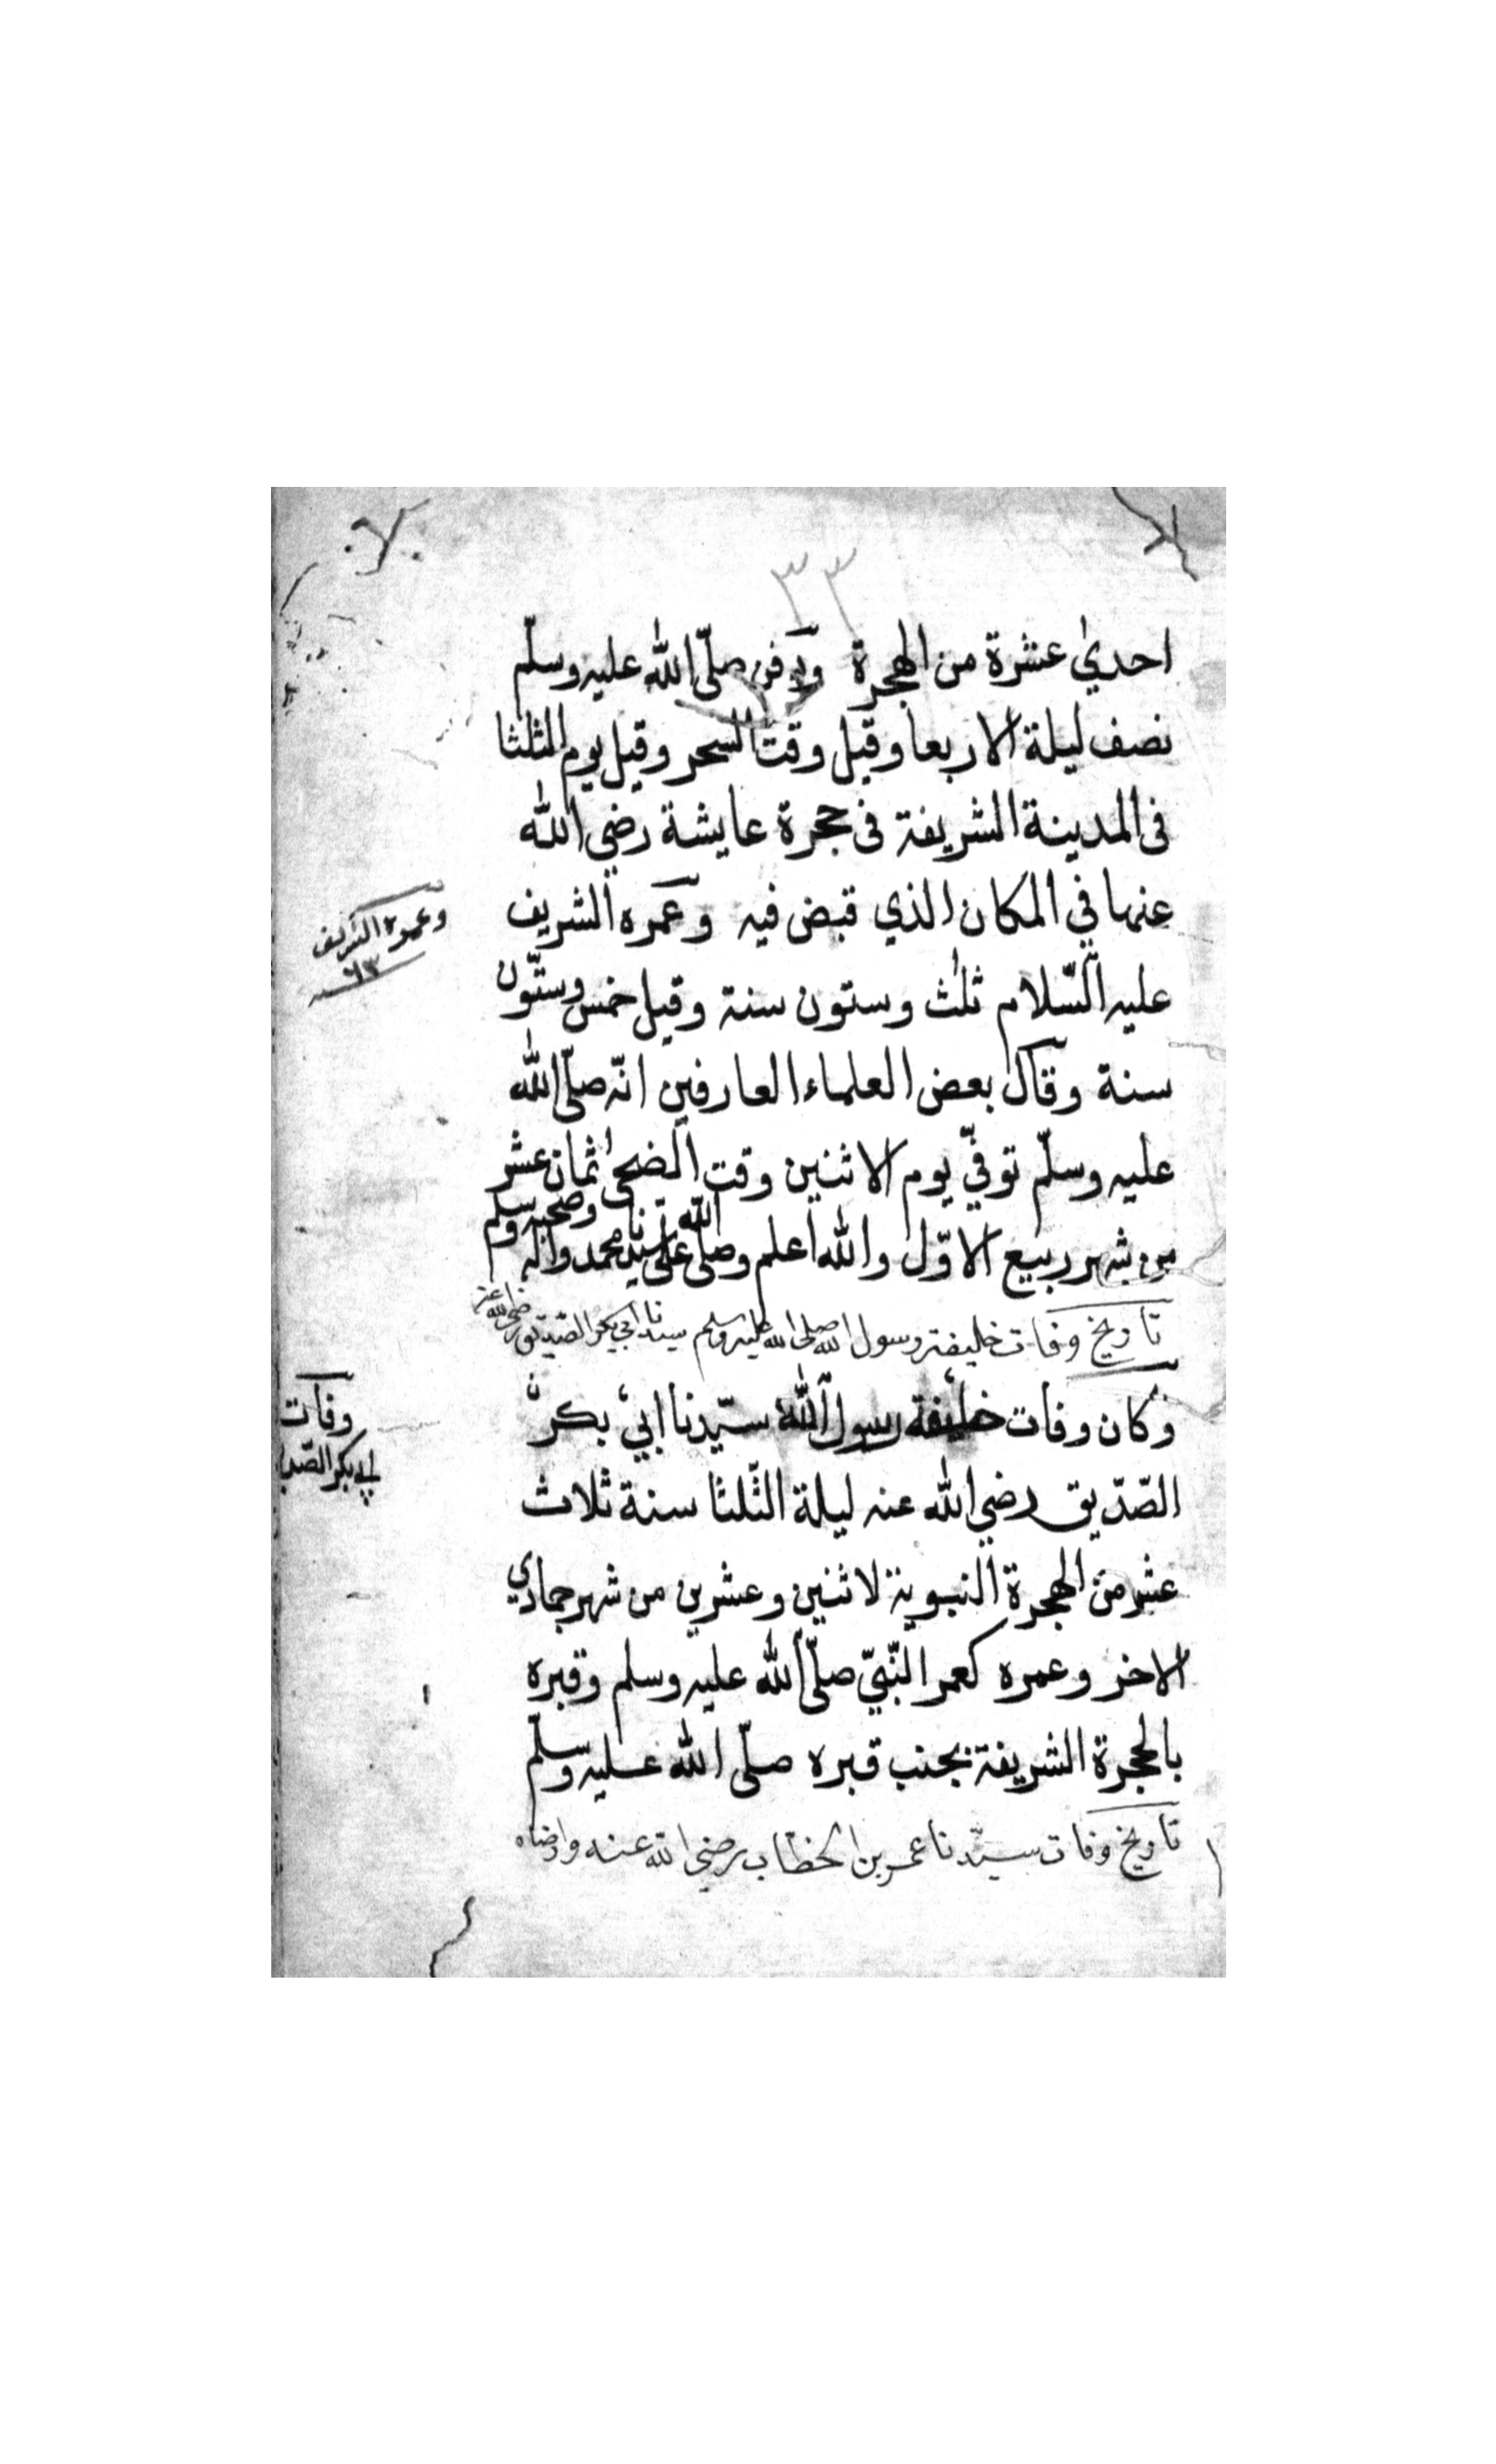 ٣٣
احدي عشرة من الهجرة ودفن صلّى الله عليه وسلّم
نصف ليلة الاربعا وقيل وقت السحر وقيل يوم الثلثا
فى المدينة الشريفة فى حجرة عايشة رضي الله
عنها في المكان الذي قبض فيه وعمره الشريف
وعمره الشريف
٦٣
عليه السّلام ثلث وستون سنة وقيل خمس وستّون
سنة وقال بعض العلماء العارفين انّه صلّى الله
عليه وسلّم توفّي يوم الاثنين وقت الضحى ثمان عشر
من شهر ربيع الاوّل والله اعلم وصلى الله على سيدنا محمد واله وصحبه وسلم
تاريخ وفات خليفة رسول الله صلى الله عليه وسلم سيدنا ابي بكر الصّديق رضي الله عنه
وكان وفات خليفة رسول الله سيّدنا ابي بكر
وفات
ابي بكر الصّد
الصّدّيق رضي الله عنه ليلة الثّلثا سنة ثلاث
عشر من الهجرة النبوية لاثنين وعشرين من شهر جمادي
الاخر وعمره كعمر النّبيّ صلّى الله عليه وسلم وقبره
بالحجرة الشريفة بجنب قبره صلّى الله عليه وسلّم
تاريخ وفات سيّدنا عمر بن الخطّاب رضي الله عنه وارضاه